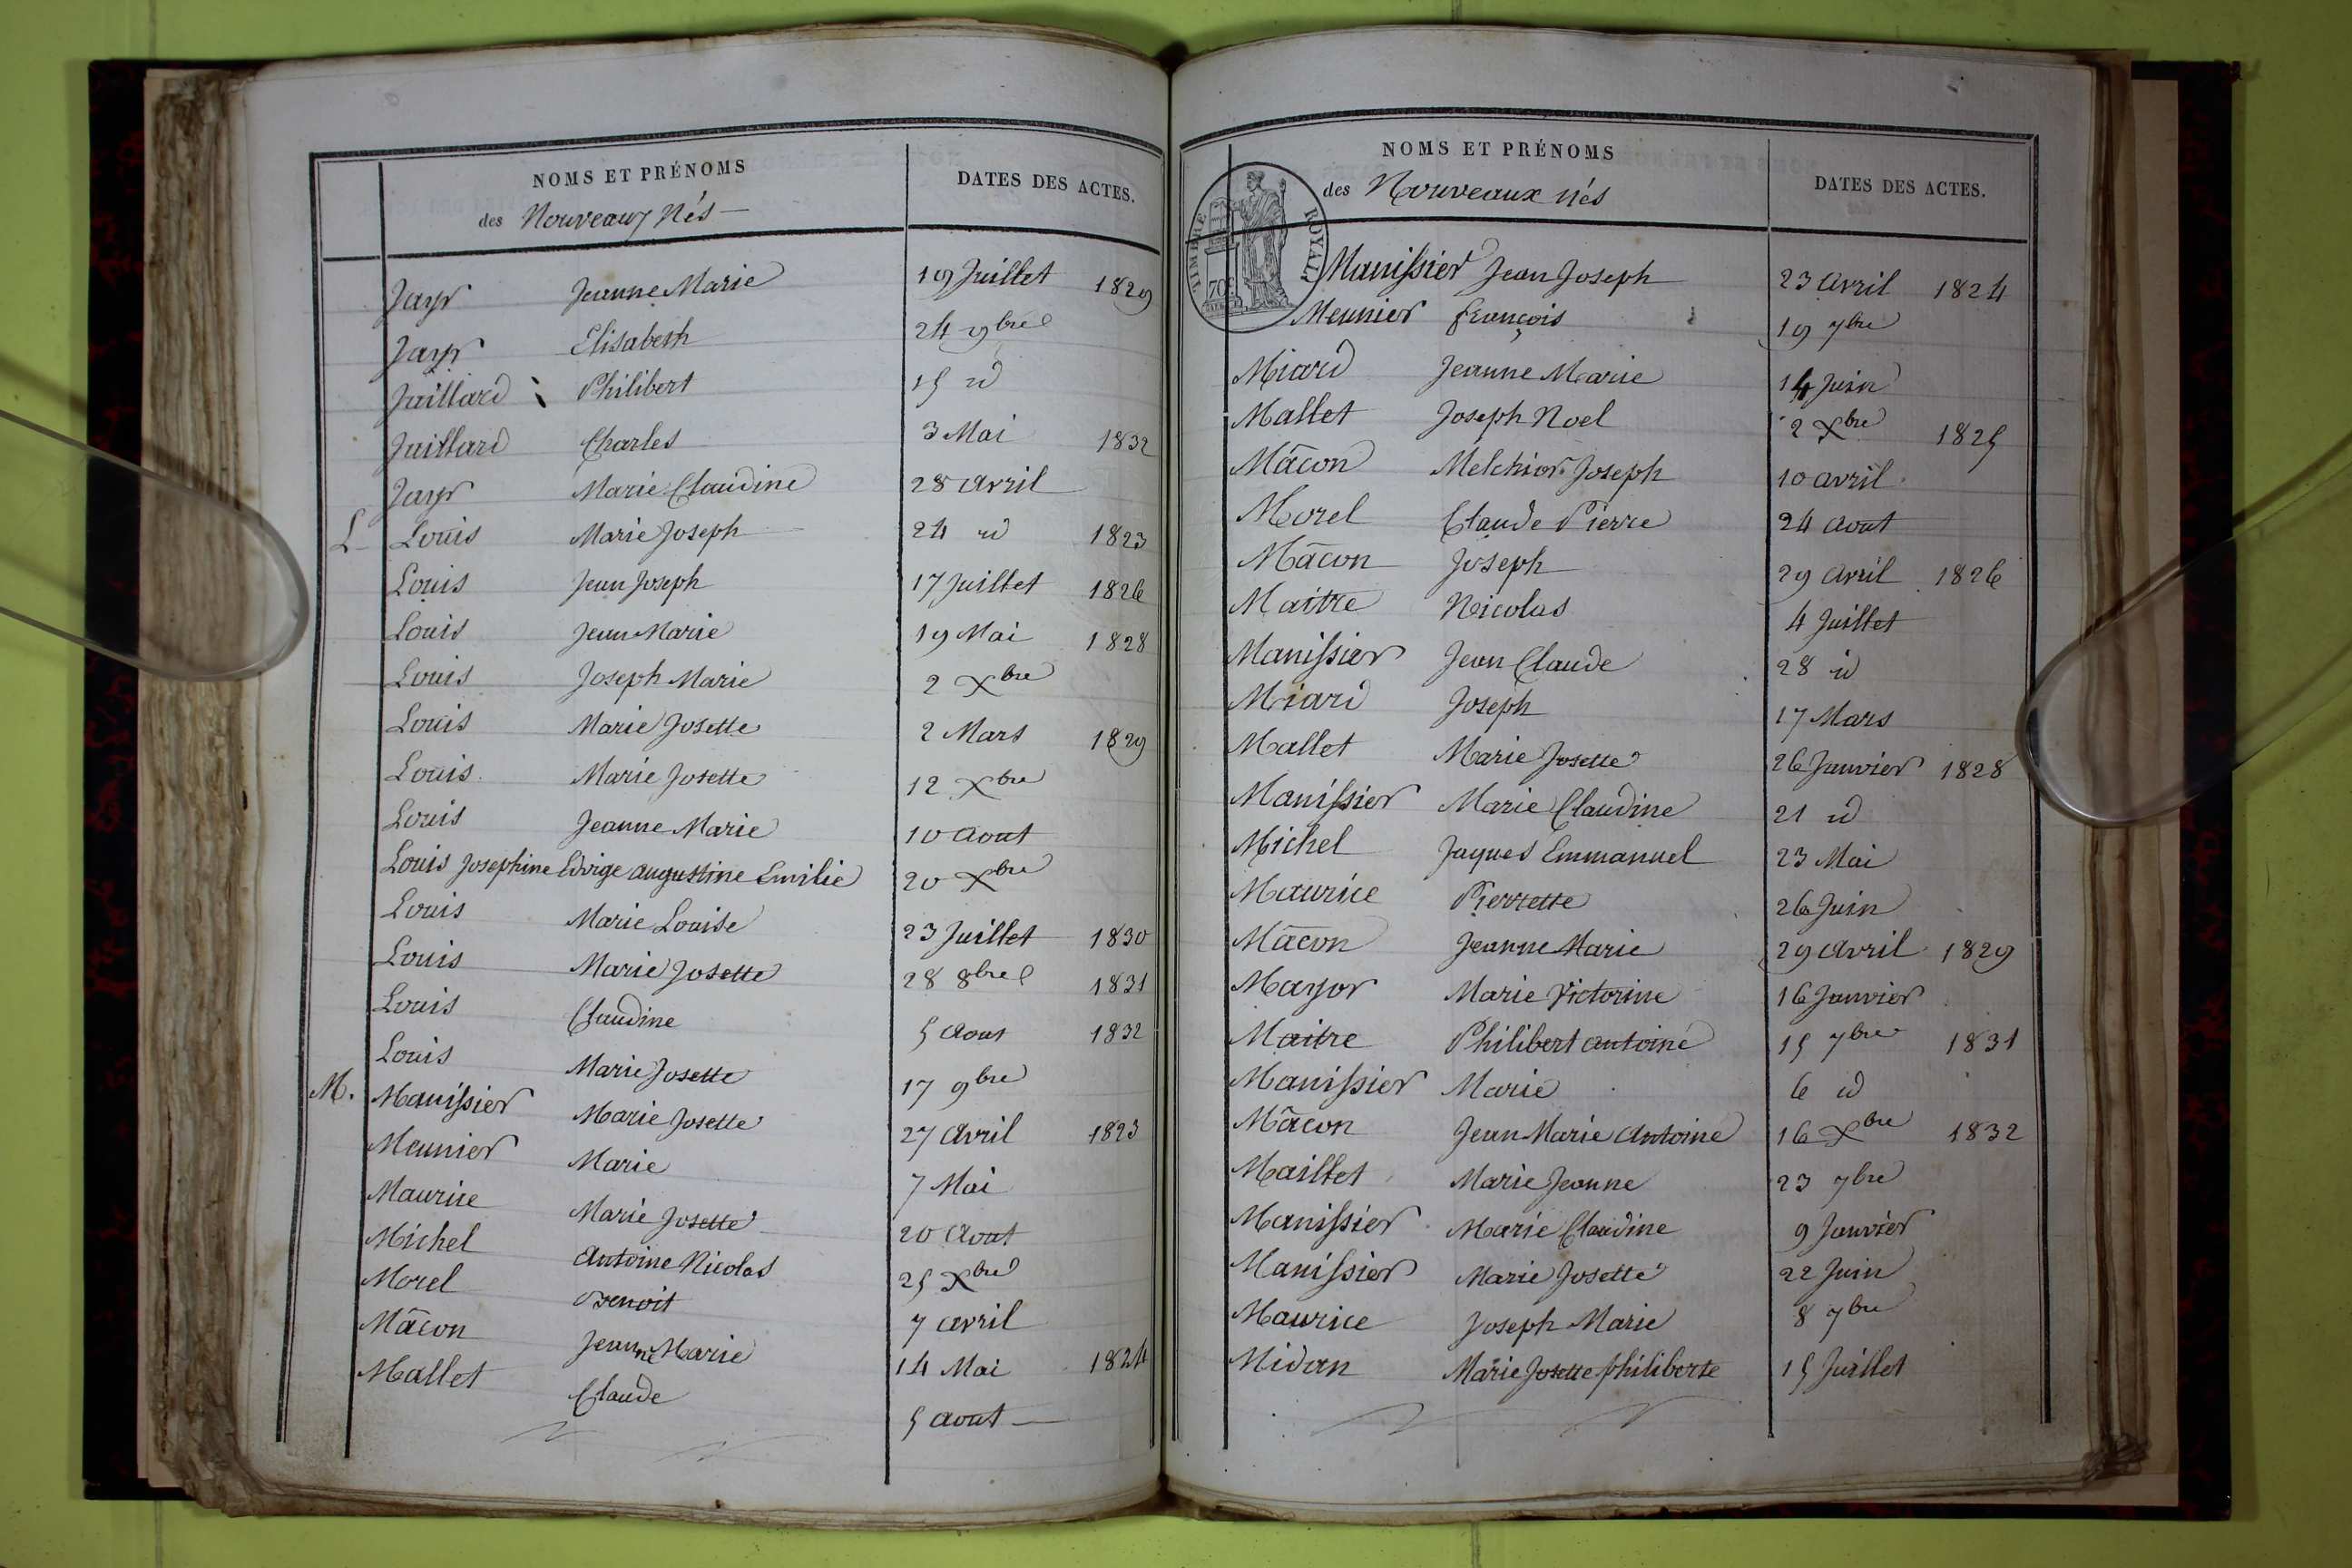 NOMS ET PRÉNOMS
des Nouveaux Nés
DATES DES ACTES.
Jayr Jeanne Marie 19 Juillet 1829
Jayr Elisabeth 24 9bre
Juillard Philibert 15 id
Juillard Charles 3 Mai 1832
Jayr Marie Claudine 28 avril
L Louis Marie Joseph 24 id 1823
Louis Jean Joseph 17 Juillet 1826
Louis Jean Marie 19 Mai 1828
Louis Joseph Marie 2 Xbre
Louis Marie Josette 2 Mars 1829
Louis Marie Josette 12 Xbre
Louis Jeanne Marie 10 aout
Louis Josephine Edvige augustine Emilie 20 Xbre
Louis Marie Louise 23 Juillet 1830
Louis Marie Josette 28 8bre 1831
Louis Claudine 5 aout 1832
Louis Marie Josette 17 9bre
M. Manissier Marie Josette 27 avril 1823
Meunier Marie 7 Mai
Maurice Marie Josette 20 aout
Michel antoine Nicolas 25 Xbre
Morel Benoit 7 avril
Mâcon Jeanne Marie 14 Mai 1824
Mallet Claude 5 aout
NOMS ET PRÉNOMS
des Nouveaux nés
DATES DES ACTES.
TIMBRE ROYAL
70
Manissier Jean Joseph 23 avril 1824
Meunier françois 19 7bre
Miard Jeanne Marie 14 Juin
Mallet Joseph Noel 2 Xbre 1825
Mâcon Melchior Joseph 10 avril
Morel Claude Pierre 24 aout
Mâcon Joseph 29 avril 1826
Maitre Nicolas 4 Juillet
Manissier Jean Claude 28 id
Miard Joseph 17 Mars
Mallet Marie Josette 26 Janvier 1828
Manissier Marie Claudine 21 id
Michel Jaques Emmanuel 23 Mai
Maurice Pierrette 26 Juin
Mâcon Jeanne Marie 29 avril 1829
Mayor Marie Victorine 16 Janvier
Maitre Philibert antoine 15 7bre 1831
Manissier Marie 6 id
Mâcon Jean Marie Antoine 16 Xbre 1832
Maillet Marie Jeanne 23 7bre
Manissier Marie Claudine 9 Janvier
Manissier Marie Josette 22 Juin
Maurice Joseph Marie 8 7bre
Midan Marie Josette philiberte 15 Juillet